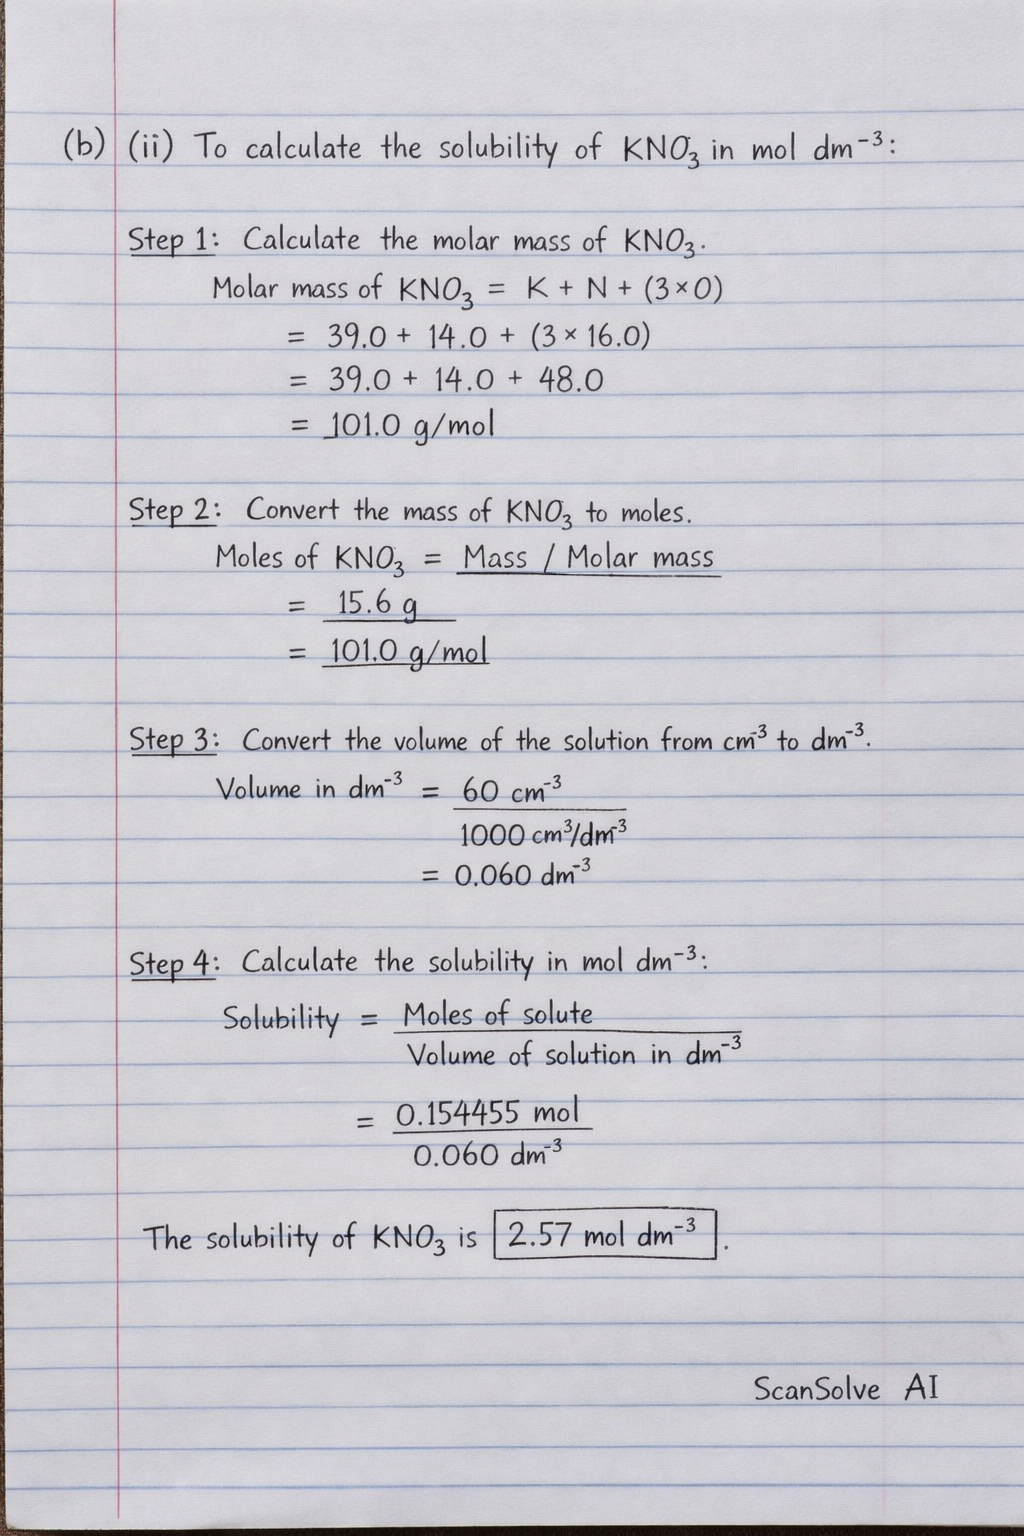 (b) (ii) To calculate the solubility of KNO₃ in mol dm⁻³:
Step 1: Calculate the molar mass of KNO₃.
Molar mass of KNO₃ = K + N + (3×O)
= 39.0 + 14.0 + (3 × 16.0)
= 39.0 + 14.0 + 48.0
= 101.0 g/mol
Step 2: Convert the mass of KNO₃ to moles.
Moles of KNO₃ = Mass / Molar mass
= 15.6 g
= 101.0 g/mol
Step 3: Convert the volume of the solution from cm⁻³ to dm⁻³.
Volume in dm⁻³ = 60 cm⁻³
1000 cm³/dm⁻³
= 0.060 dm⁻³
Step 4: Calculate the solubility in mol dm⁻³:
Solubility = Moles of solute
Volume of solution in dm⁻³
= 0.154455 mol
0.060 dm⁻³
The solubility of KNO₃ is 2.57 mol dm⁻³.
ScanSolve AI